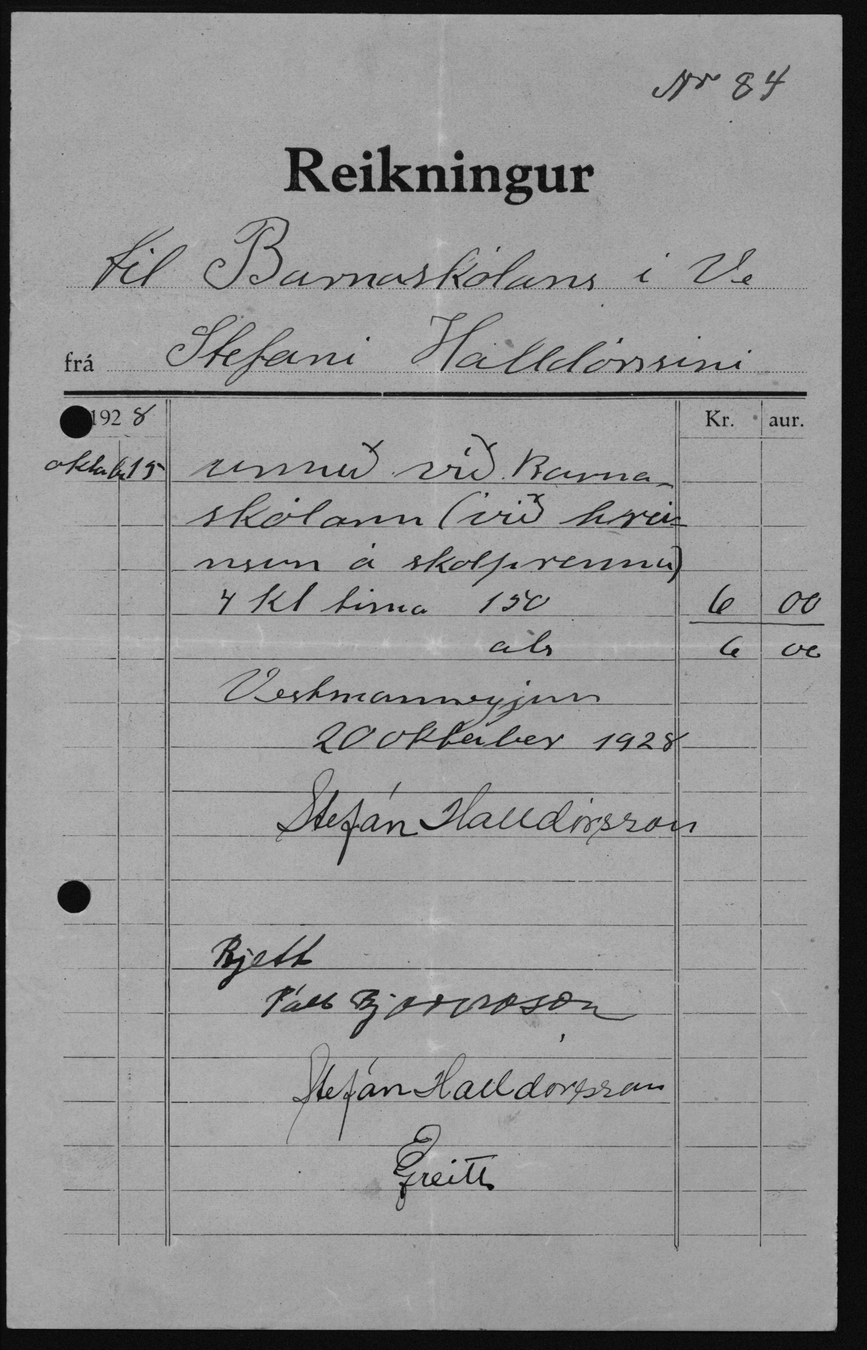 Nr 84
Reikningur
til Barnaskólans í Ve
frá Stefani Halldórssini
1928 Kr. aur.
oktober 15 unnið við Barna-
skólann (við hrei-
nsun á skolprennu)
4 Kl tima 150 6 00
als 6 00
Vestmannaeyjum
20 oktober 1928
Stefán Halldórsson
Rjett
Páll Bjarnason
Stefán Halldórsson
Greitt